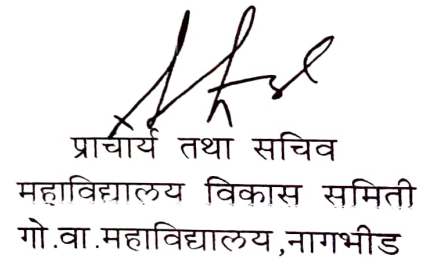 प्राचार्य तथा सचिव
महाविद्यालय विकास समिती
गो.वा.महाविद्यालय,नागभीड